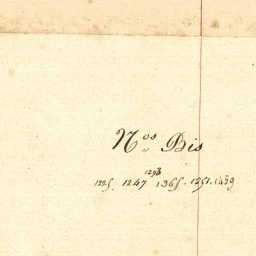 Nos Bis
1293
1225. 1247 1365. 1251. 1439